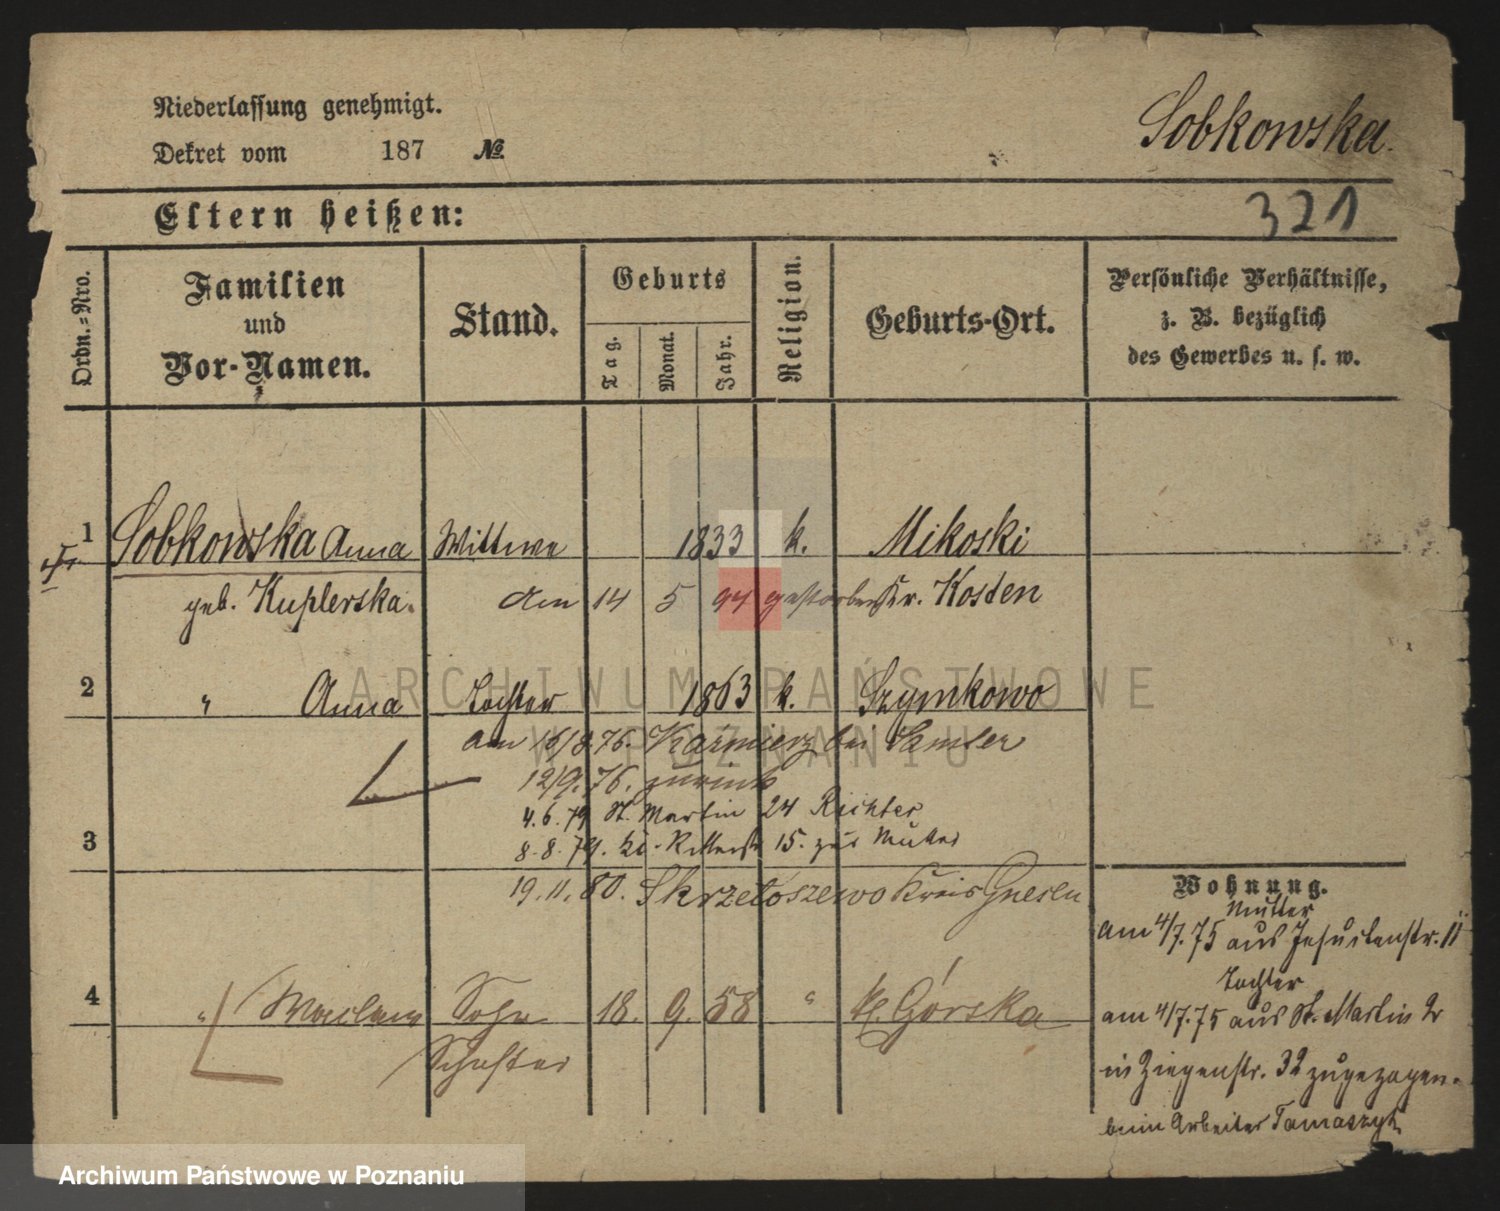 Niederlassung genehmigt.
Sobkowska.
Dekret vom 187 №
Eltern heißen:
321
Ordn.=Nro.
Familien
und
Vor-Namen.
Stand.
Geburts
Tag.
Monat.
Jahr.
Religion.
Geburts-Ort.
Persönliche Verhältnisse,
z. B. bezüglich
des Gewerbes u. s. w.
1 Sobkowska Anna Wittwe 1833 k. Mikoski
geb. Kuplerska. Am 14 5 94 gestorben Kr. Kosten
2 " Anna Tochter 1863 k. Szymkowo
am 16/8 76. Kazmierz bei Samter
12/9. 76. zurück
4. 6. 79 St. Martin 24 Richter
3 8. 8. 79. Kl. Ritterstr 15. zur Mutter
19. 11. 80. Skrzetoszewo Kreis Gnesen
4 " Waclaw Sohn 18. 9. 58 " Górska
Schuster
Wohnung.
Mutter
am 4/7. 75 aus Jesuitenstr. 11
Tochter
am 4/7. 75 aus St. Martin 2
in Ziegenstr. 32 zugezogen.
beim Arbeiter Tomaszyk
ARCHIWUM PAŃSTWOWE
W POZNANIU
Archiwum Państwowe w Poznaniu